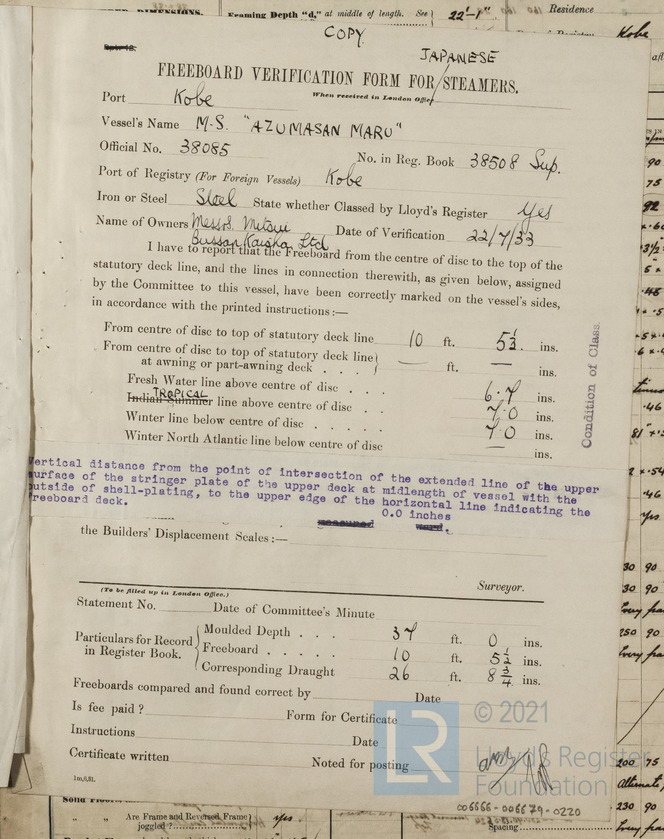 DIMENSIONS.
Framing Depth "d," at middle of length. See
22'-1"
Residence
Kobe
COPY
JAPANESE
FREEBOARD VERIFICATION FORM FOR STEAMERS.
When received in London Office
Port Kobe
Vessel's Name M.S. "AZUMASAN MARU"
Official No. 38085 No. in Reg. Book 38508 Sup.
Port of Registry (For Foreign Vessels) Kobe
Iron or Steel Steel State whether Classed by Lloyd's Register Yes
Name of Owners Messrs. Mitsui Bussan Kaisha Ltd Date of Verification 22/7/33
I have to report that the Freeboard from the centre of disc to the top of the
statutory deck line, and the lines in connection therewith, as given below, assigned
by the Committee to this vessel, have been correctly marked on the vessel's sides,
in accordance with the printed instructions:—
From centre of disc to top of statutory deck line 10 ft. 5½ ins.
From centre of disc to top of statutory deck line
at awning or part-awning deck . . . — ft. — ins.
Fresh Water line above centre of disc . . . 6.7 ins.
TROPICAL
Indian Summer line above centre of disc . . 7.0 ins.
Winter line below centre of disc . . . . . 7.0 ins.
Winter North Atlantic line below centre of disc — ins.
Condition of Class.
Vertical distance from the point of intersection of the extended line of the upper
surface of the stringer plate of the upper deck at midlength of vessel with the
outside of shell-plating, to the upper edge of the horizontal line indicating the
freeboard deck. 0.0 inches
measured ward.
the Builders' Displacement Scales:—
Surveyor.
(To be filled up in London Office.)
Statement No. Date of Committee's Minute
Particulars for Record in Register Book.
Moulded Depth . . . 37 ft. 0 ins.
Freeboard . . . . 10 ft. 5½ ins.
Corresponding Draught 26 ft. 8¾ ins.
Freeboards compared and found correct by Date
Is fee paid? Form for Certificate
Instructions Date
Certificate written Noted for posting
1m,6,31.
LR
© 2021
Lloyd's Register
Foundation
006666-006679-0220
Are Frame and Reversed Frame
joggled? yes
Spacing